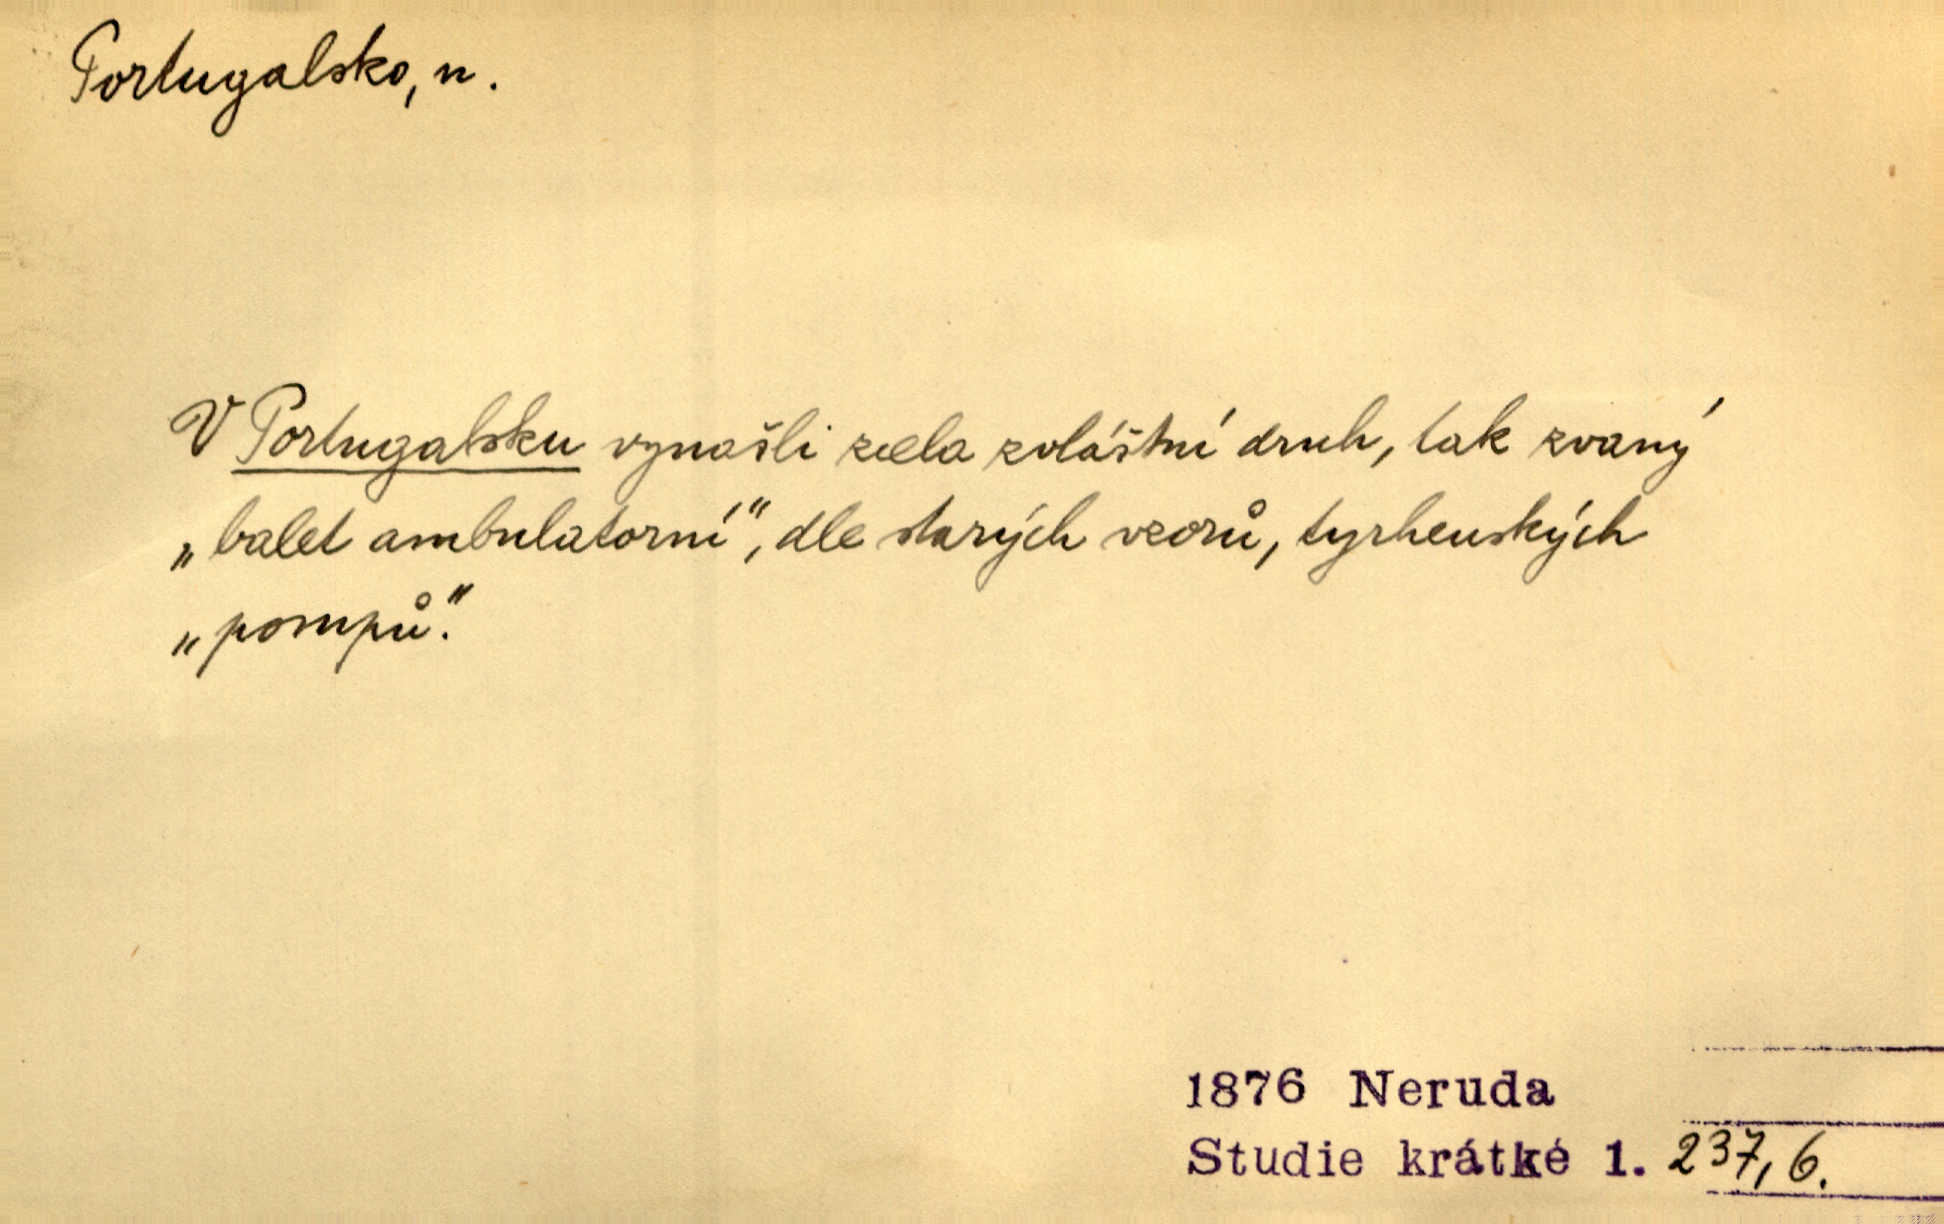 Portugalsko, n.
V Portugalsku vynašli zcela zvláštní druh, tak zvaný
„balet ambulatorní“, dle starých vzorů, tyrhenských
„pompů.“
1876 Neruda
Studie krátké 1. 237, 6.